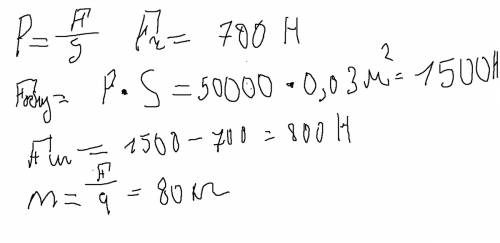 P = F/S Fч = 700 H
Fобщ = P · S = 50000 · 0,03 м² = 1500 H
Fш = 1500 - 700 = 800 H
m = F/g = 80 кг